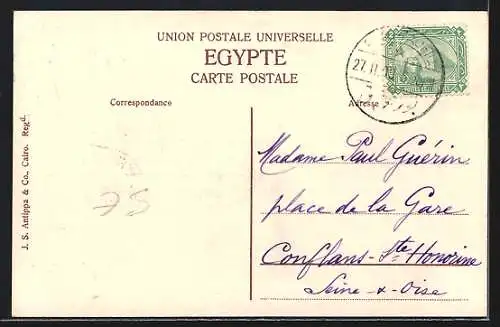 UNION POSTALE UNIVERSELLE
EGYPTE
CARTE POSTALE
Correspondance
Adresse
27.II
Madame Paul Guérin
place de la Gare
Conflans-Ste Honorine
Seine & Oise
J. S. Antippa & Co., Cairo. Regd.